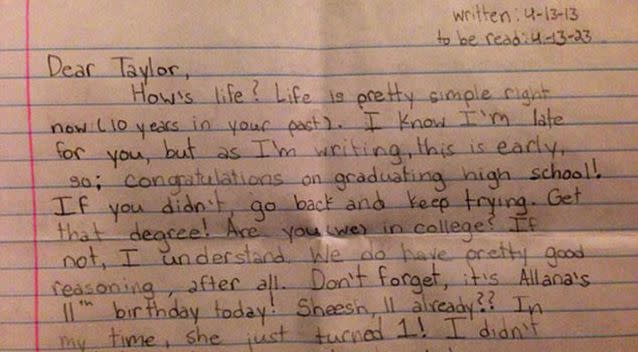 written: 4-13-13
to be read: 4-13-23
Dear Taylor,
How's life? Life is pretty simple right
now (10 years in your past). I know I'm late
for you, but as I'm writing, this is early,
so; congratulations on graduating high school!
If you didn't, go back and keep trying. Get
that degree! Are you (we) in college? If
not, I understand. We do have pretty good
reasoning, after all. Don't forget, it's Allana's
11th birthday today! Sheesh, 11 already?? In
my time, she just turned 1! I didn't